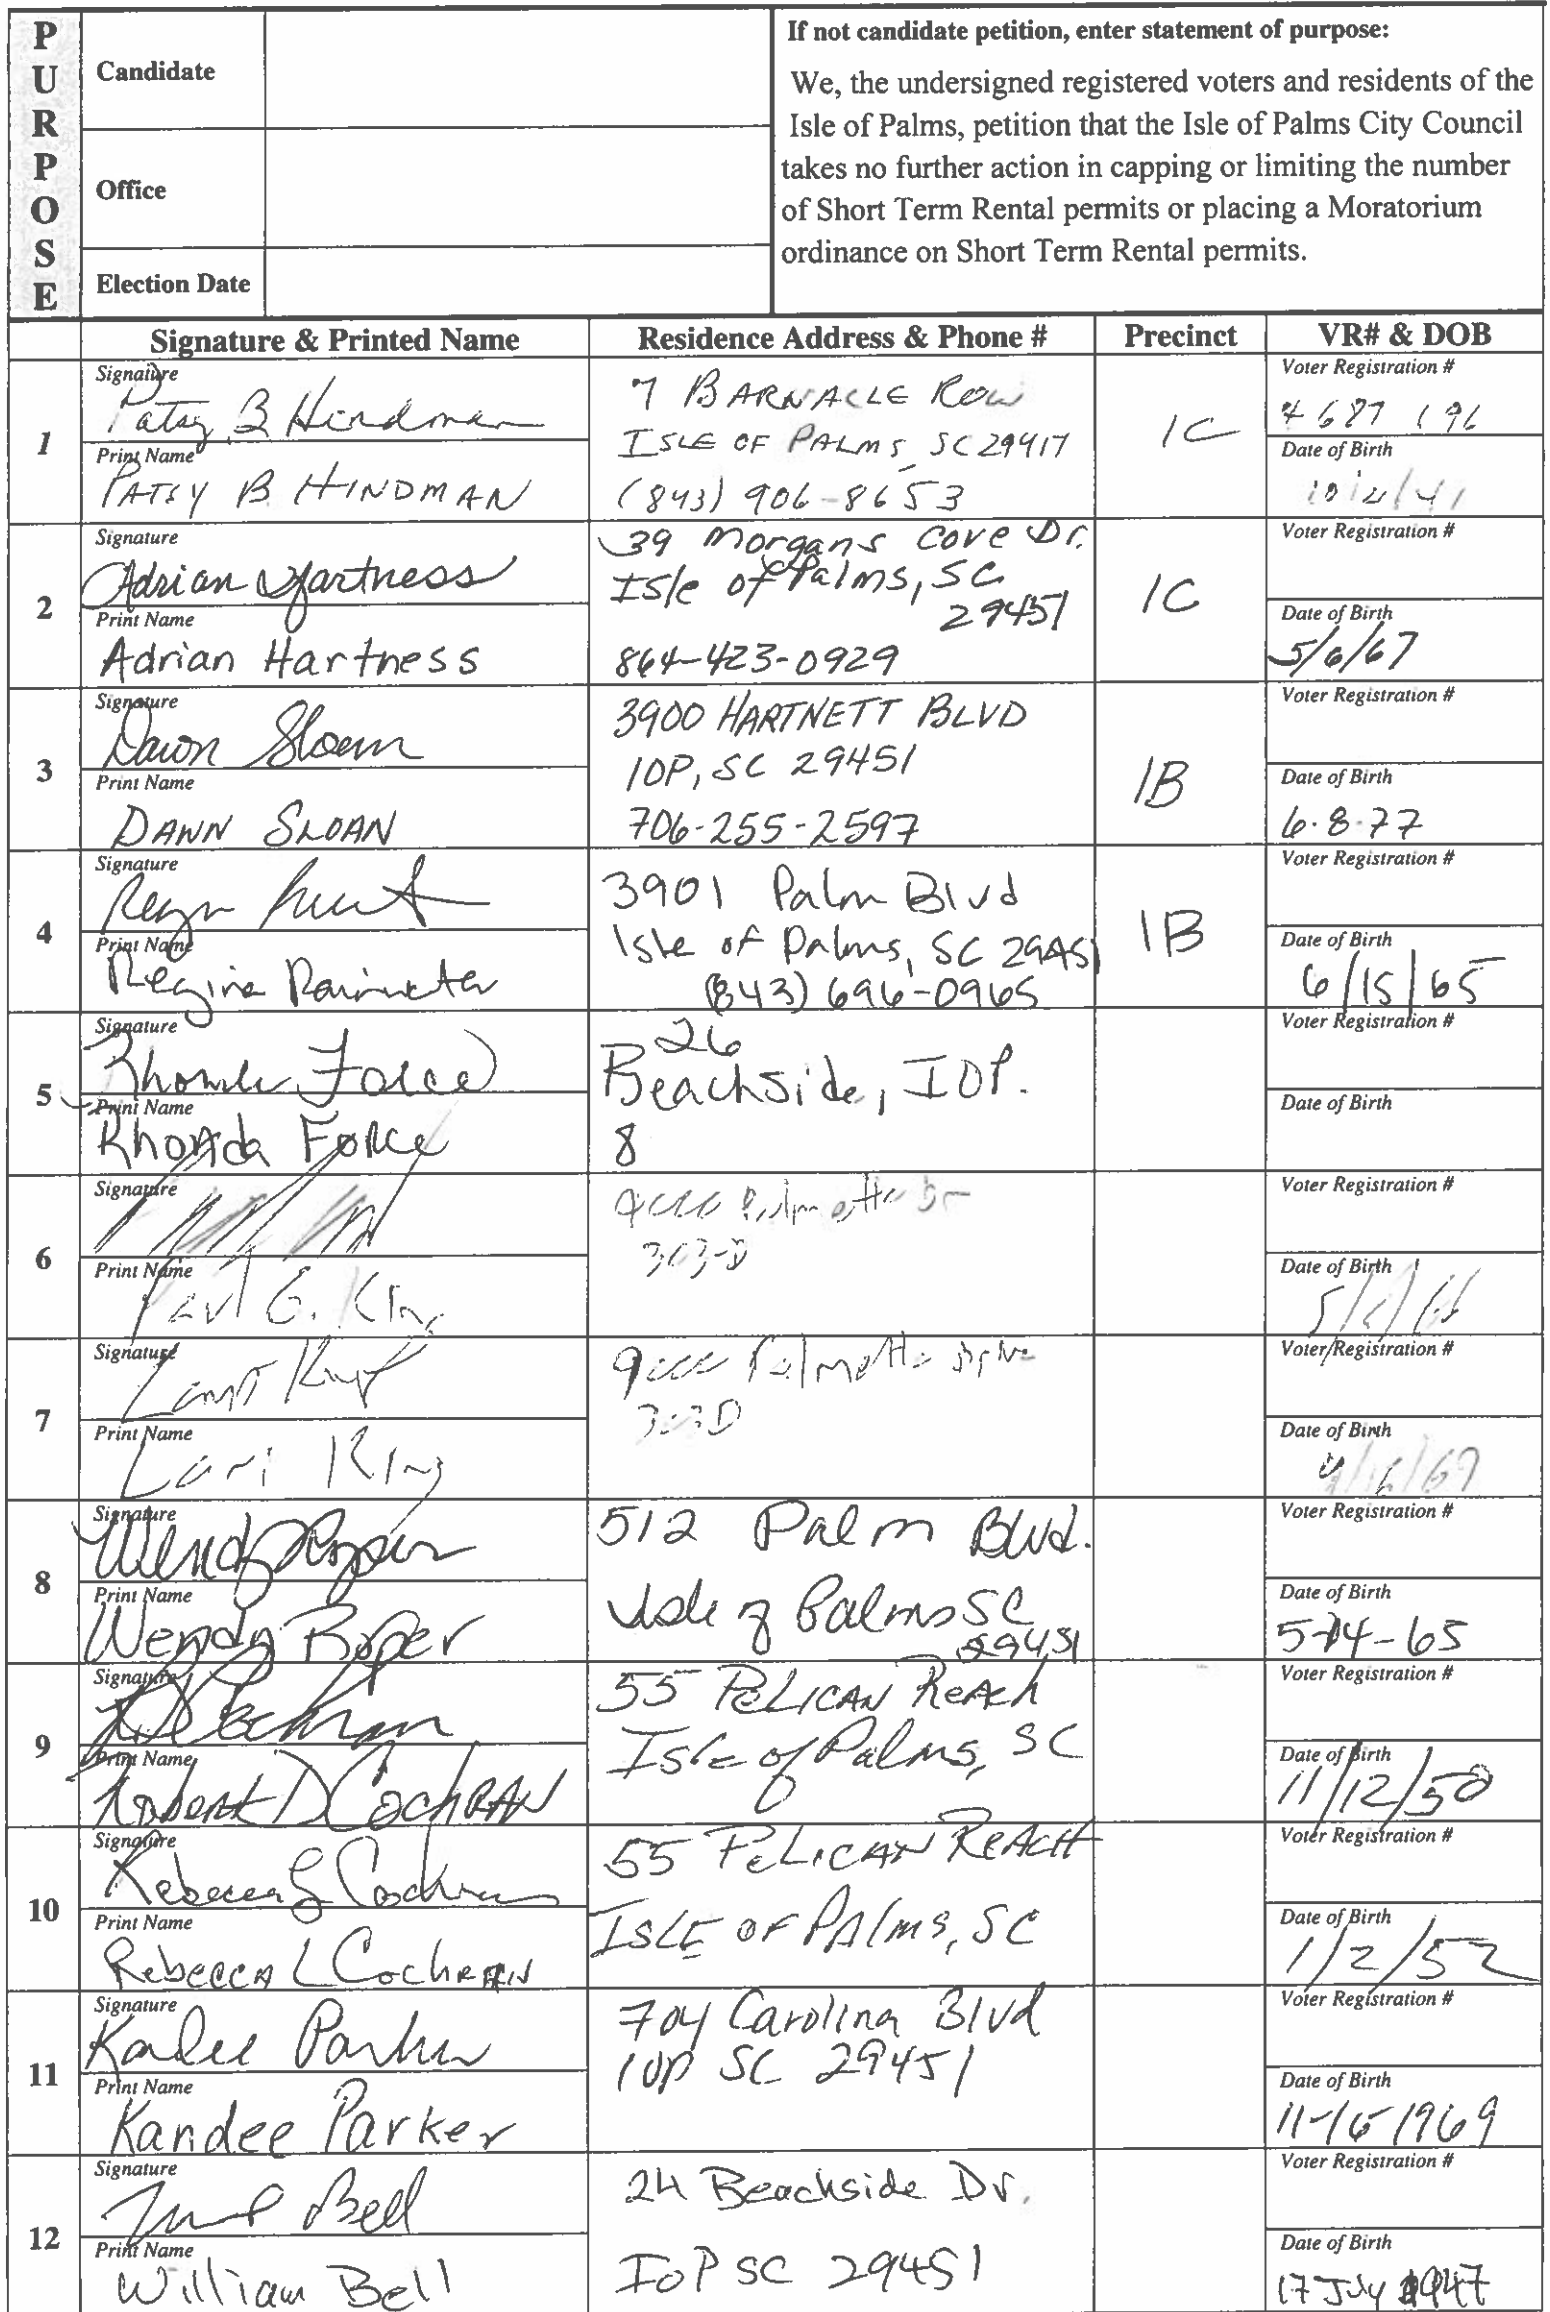 PURPOSE
Candidate
Office
Election Date
If not candidate petition, enter statement of purpose:
We, the undersigned registered voters and residents of the
Isle of Palms, petition that the Isle of Palms City Council
takes no further action in capping or limiting the number
of Short Term Rental permits or placing a Moratorium
ordinance on Short Term Rental permits.
Signature & Printed Name
Residence Address & Phone #
Precinct
VR# & DOB
1
Signature
Patsy B Hindman
Print Name
PATSY B HINDMAN
7 BARNACLE ROW
ISLE OF PALMS, SC 29417
(843) 906-8653
1C
Voter Registration #
4 687 196
Date of Birth
2
Signature
Adrian Hartness
Print Name
Adrian Hartness
39 Morgans Cove Dr.
Isle of Palms, SC
29451
864-423-0929
1C
Voter Registration #
Date of Birth
5/6/67
3
Signature
Dawn Sloan
Print Name
DAWN SLOAN
3900 HARTNETT BLVD
IOP, SC 29451
706-255-2597
1B
Voter Registration #
Date of Birth
6.8.77
4
Signature
Print Name
Regina
3901 Palm Blvd
Isle of Palms, SC 29451
(843) 696-0965
1B
Voter Registration #
Date of Birth
6/15/65
5
Signature
Rhonda Force
Print Name
Rhonda Force
26
Beachside, IOP.
8
Voter Registration #
Date of Birth
6
Signature
Print Name
Paul G. King
9000 Palmetto Dr
303-D
Voter Registration #
Date of Birth
7
Signature
Print Name
Lori King
9000 Palmetto Drive
303D
Voter Registration #
Date of Birth
8
Signature
Wendy Roper
Print Name
Wendy Roper
512 Palm Blvd.
Isle of Palms SC
29451
Voter Registration #
Date of Birth
5-14-65
9
Signature
Print Name
Robert D Cochran
55 Pelican Reach
Isle of Palms, SC
Voter Registration #
Date of Birth
11/12/50
10
Signature
Rebecca L Cochran
Print Name
Rebecca L Cochran
55 Pelican Reach
ISLE OF PAlms, SC
Voter Registration #
Date of Birth
1/2/52
11
Signature
Kandee Parker
Print Name
Kandee Parker
704 Carolina Blvd
IOP SC 29451
Voter Registration #
Date of Birth
11-16-1969
12
Signature
Bell
Print Name
William Bell
24 Beachside Dr.
IOP SC 29451
Voter Registration #
Date of Birth
17 July 1947